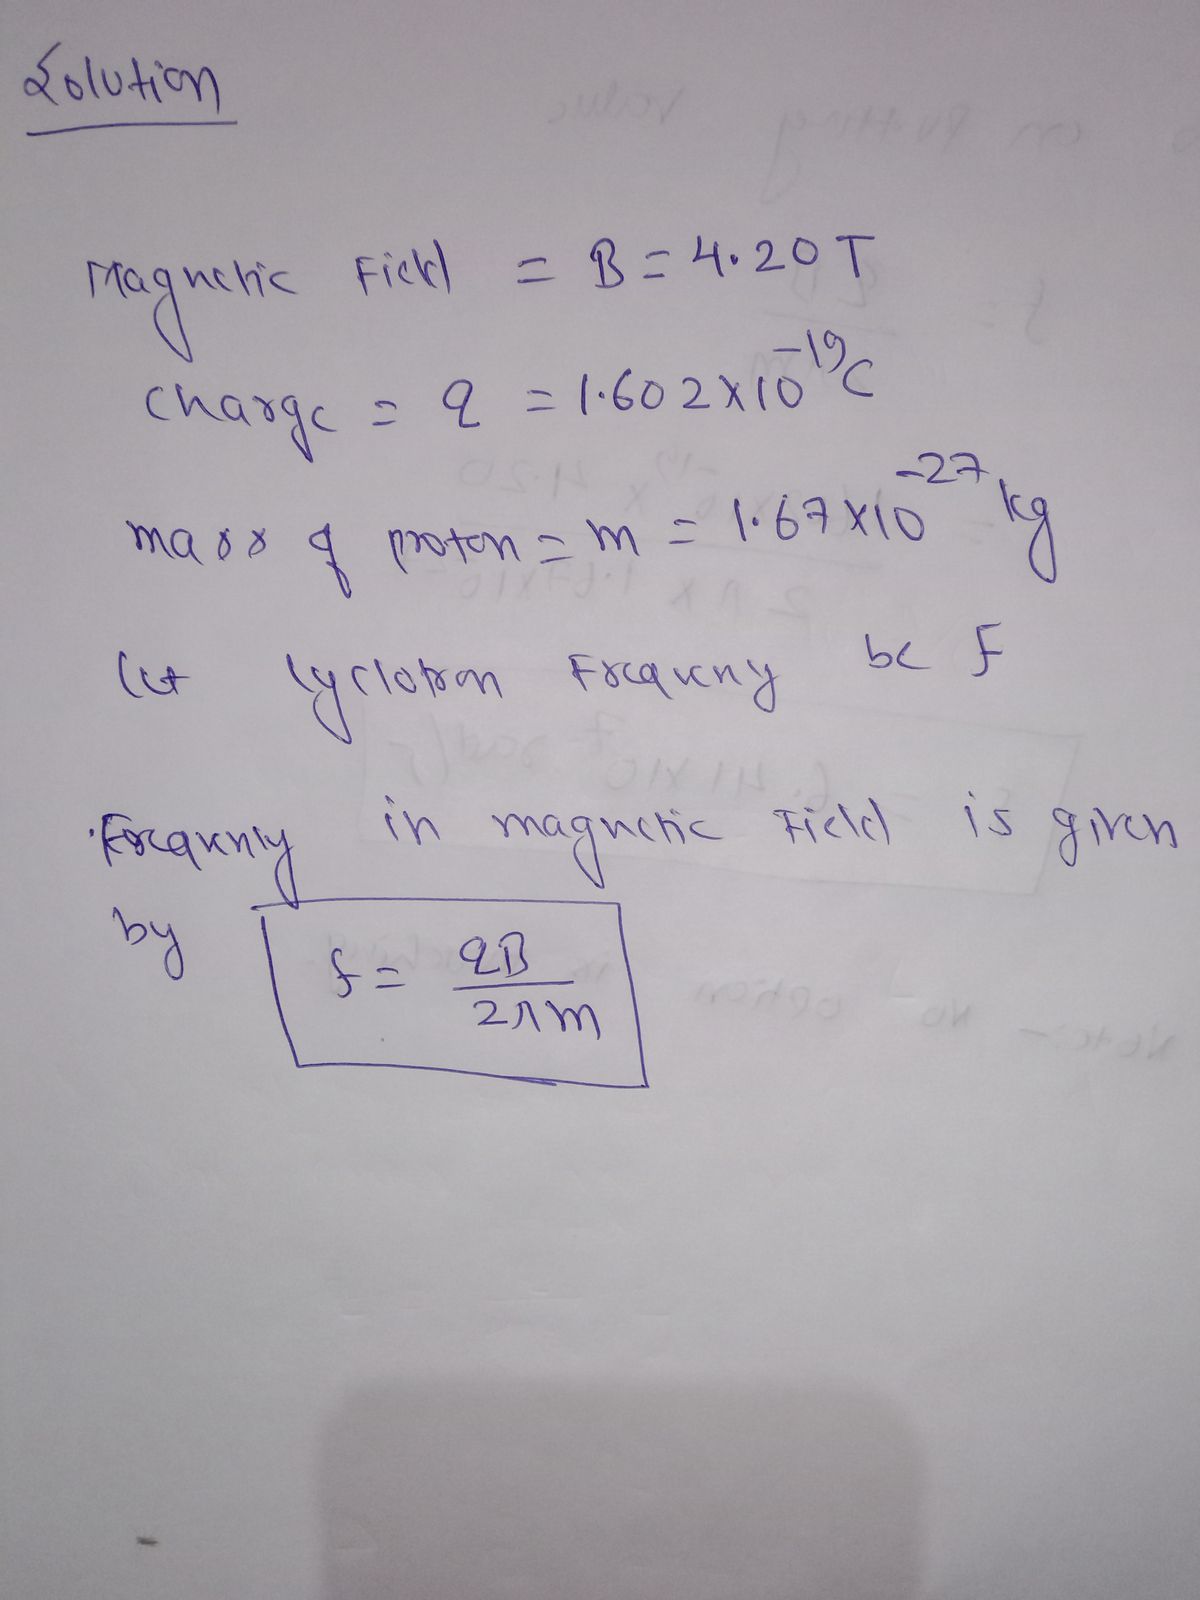 Solution
Magnetic Field = B = 4.20 T
charge = q = 1.602 × 10⁻¹⁹ C
mass of proton = m = 1.67 × 10⁻²⁷ kg
let cyclotron Frequency be f
Frequency in magnetic Field is given
by f = qB / 2πm